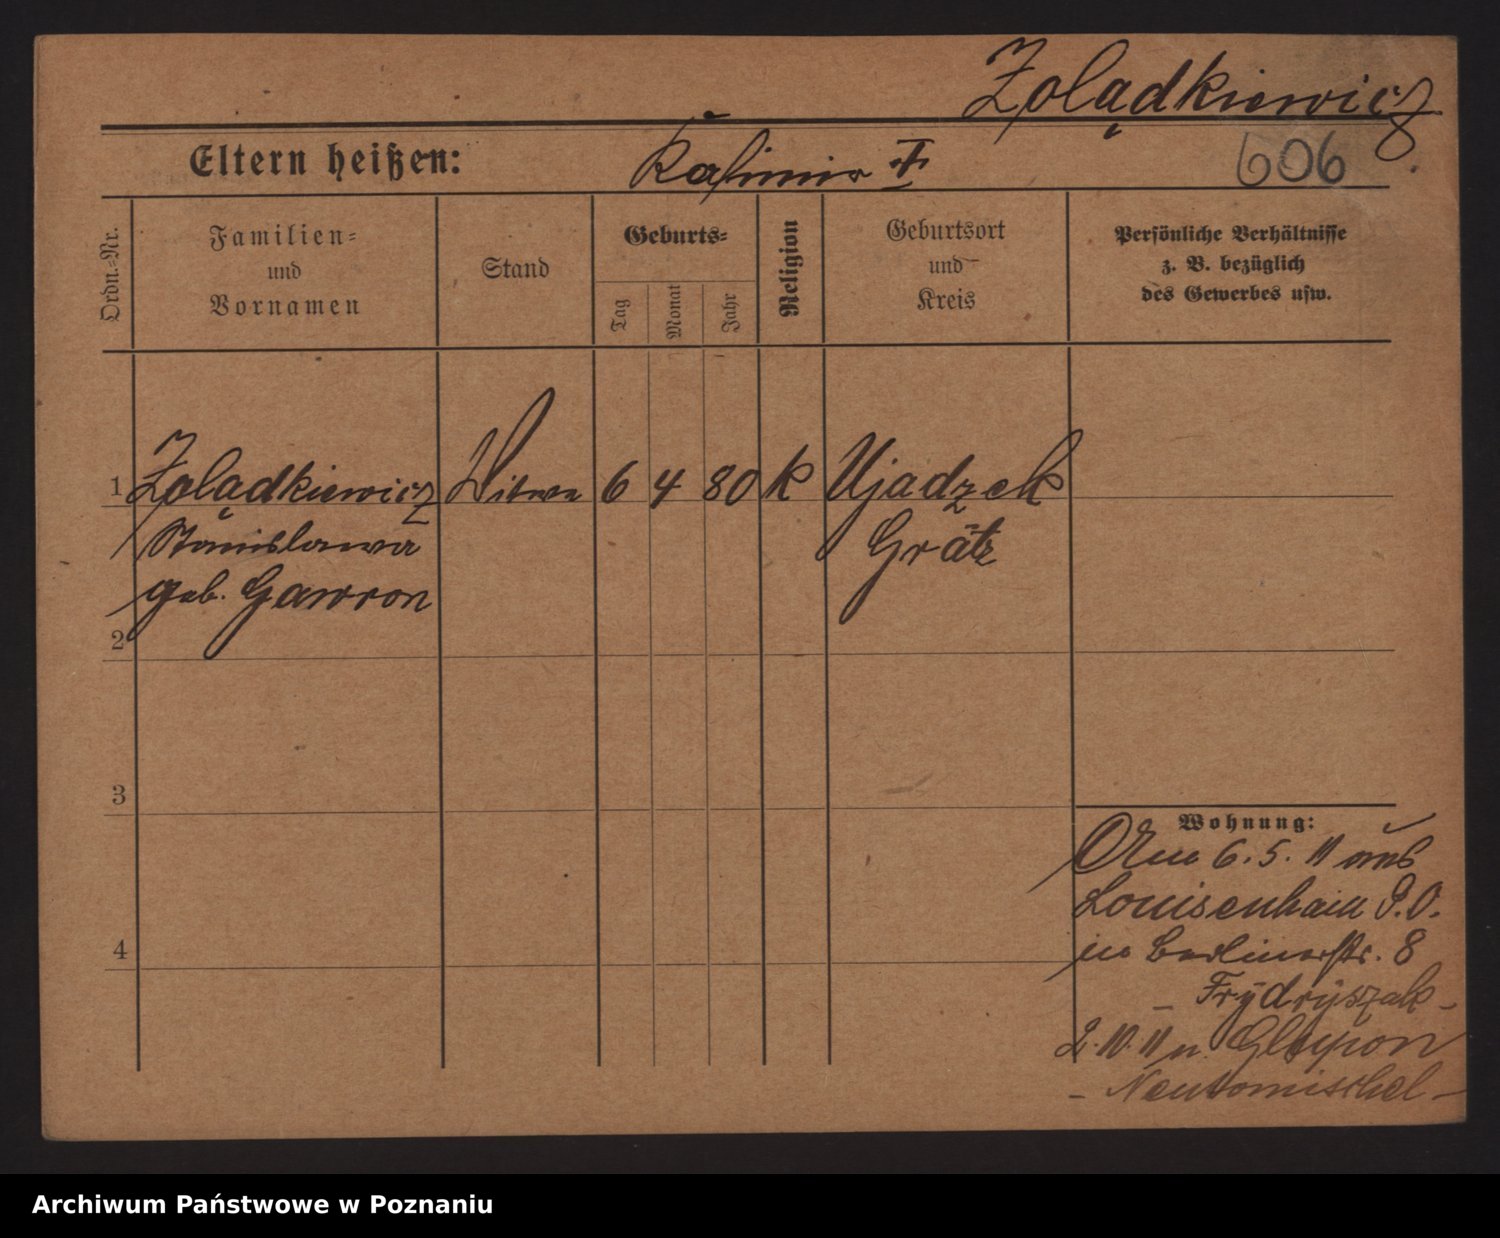 Zolądkiewicz
Eltern heißen: Kasimir †
606
Ordn.-Nr.
Familien-
und
Vornamen
Stand
Geburts-
Tag
Monat
Jahr
Religion
Geburtsort
und
Kreis
Persönliche Verhältnisse
z. B. bezüglich
des Gewerbes usw.
1 Zolądkiewicz Witwe 6 4 80 K Ujadzek
Stanislawa Grätz
geb. Gawron
2
3
4
Wohnung:
Am 6.5.11 aus
Louisenhain P.O.
in Berlinerstr. 8
- Frydryszak -
2.10.11 n. Glupon
- Neutomischel -
Archiwum Państwowe w Poznaniu